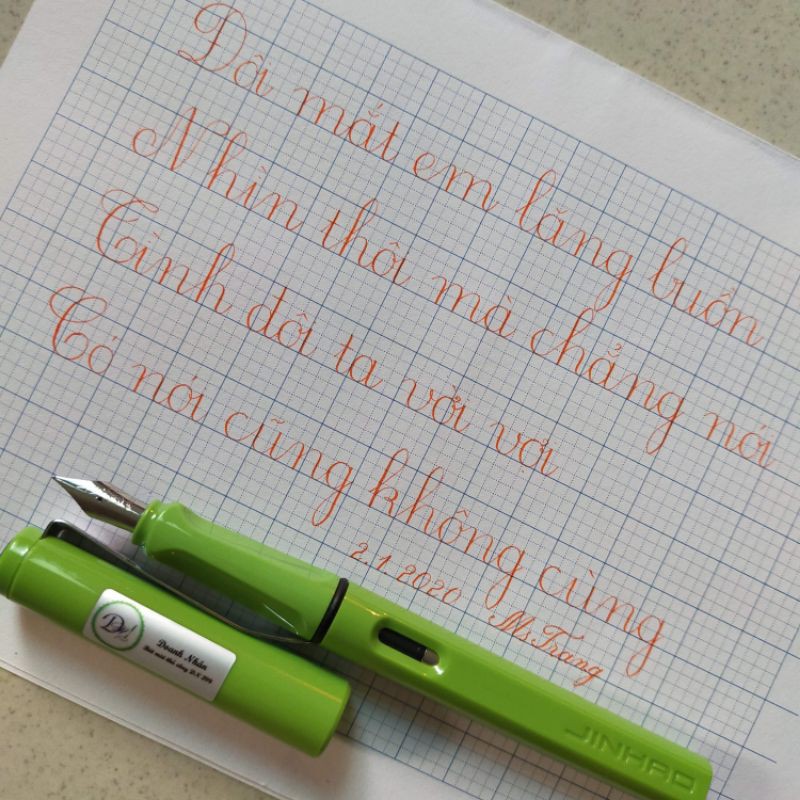 Đôi mắt em lăng buồn
Nhìn thôi mà chẳng nói
Tình đôi ta vời vơi
Có nói cũng không cùng
2.1.2020 Ms Trang
Doanh Nhân
JINHAO